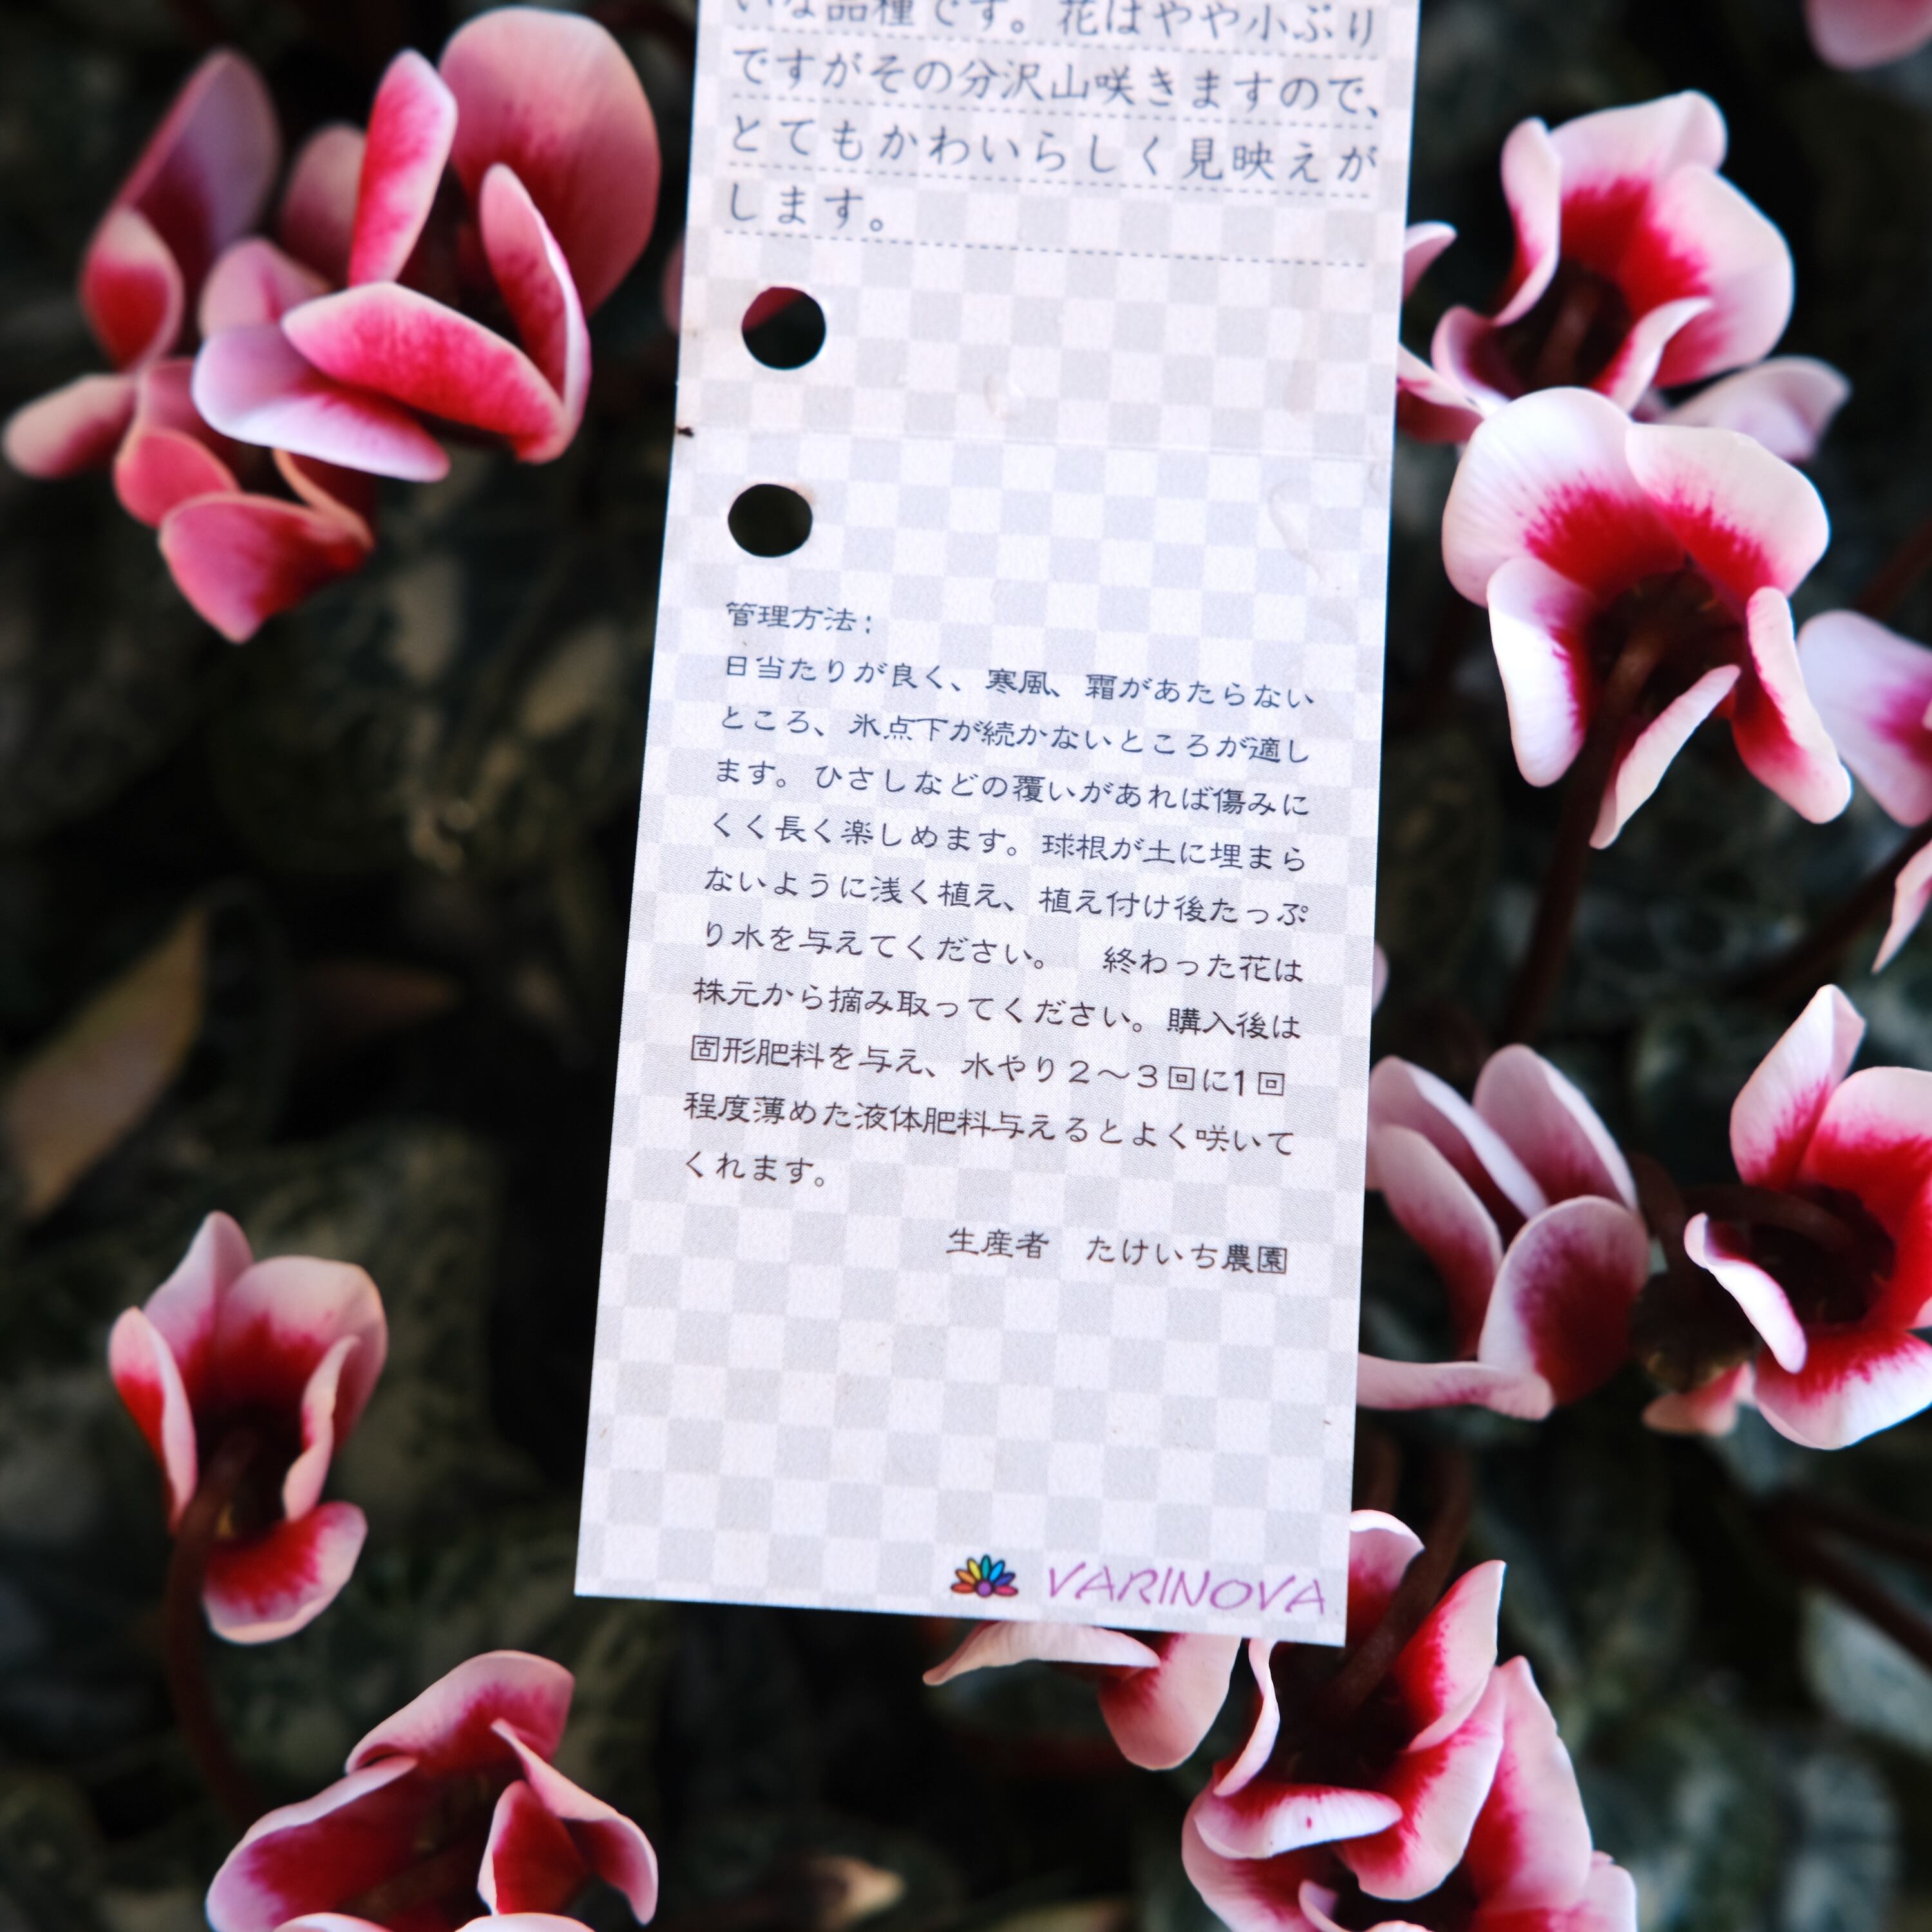 いな品種です。花はやや小ぶり
ですがその分沢山咲きますので、
とてもかわいらしく見映えが
します。
管理方法:
日当たりが良く、寒風、霜があたらない
ところ、氷点下が続かないところが適し
ます。ひさしなどの覆いがあれば傷みに
くく長く楽しめます。球根が土に埋まら
ないように浅く植え、植え付け後たっぷ
り水を与えてください。　終わった花は
株元から摘み取ってください。購入後は
固形肥料を与え、水やり２〜３回に1回
程度薄めた液体肥料与えるとよく咲いて
くれます。
生産者　たけいち農園
VARINOVA